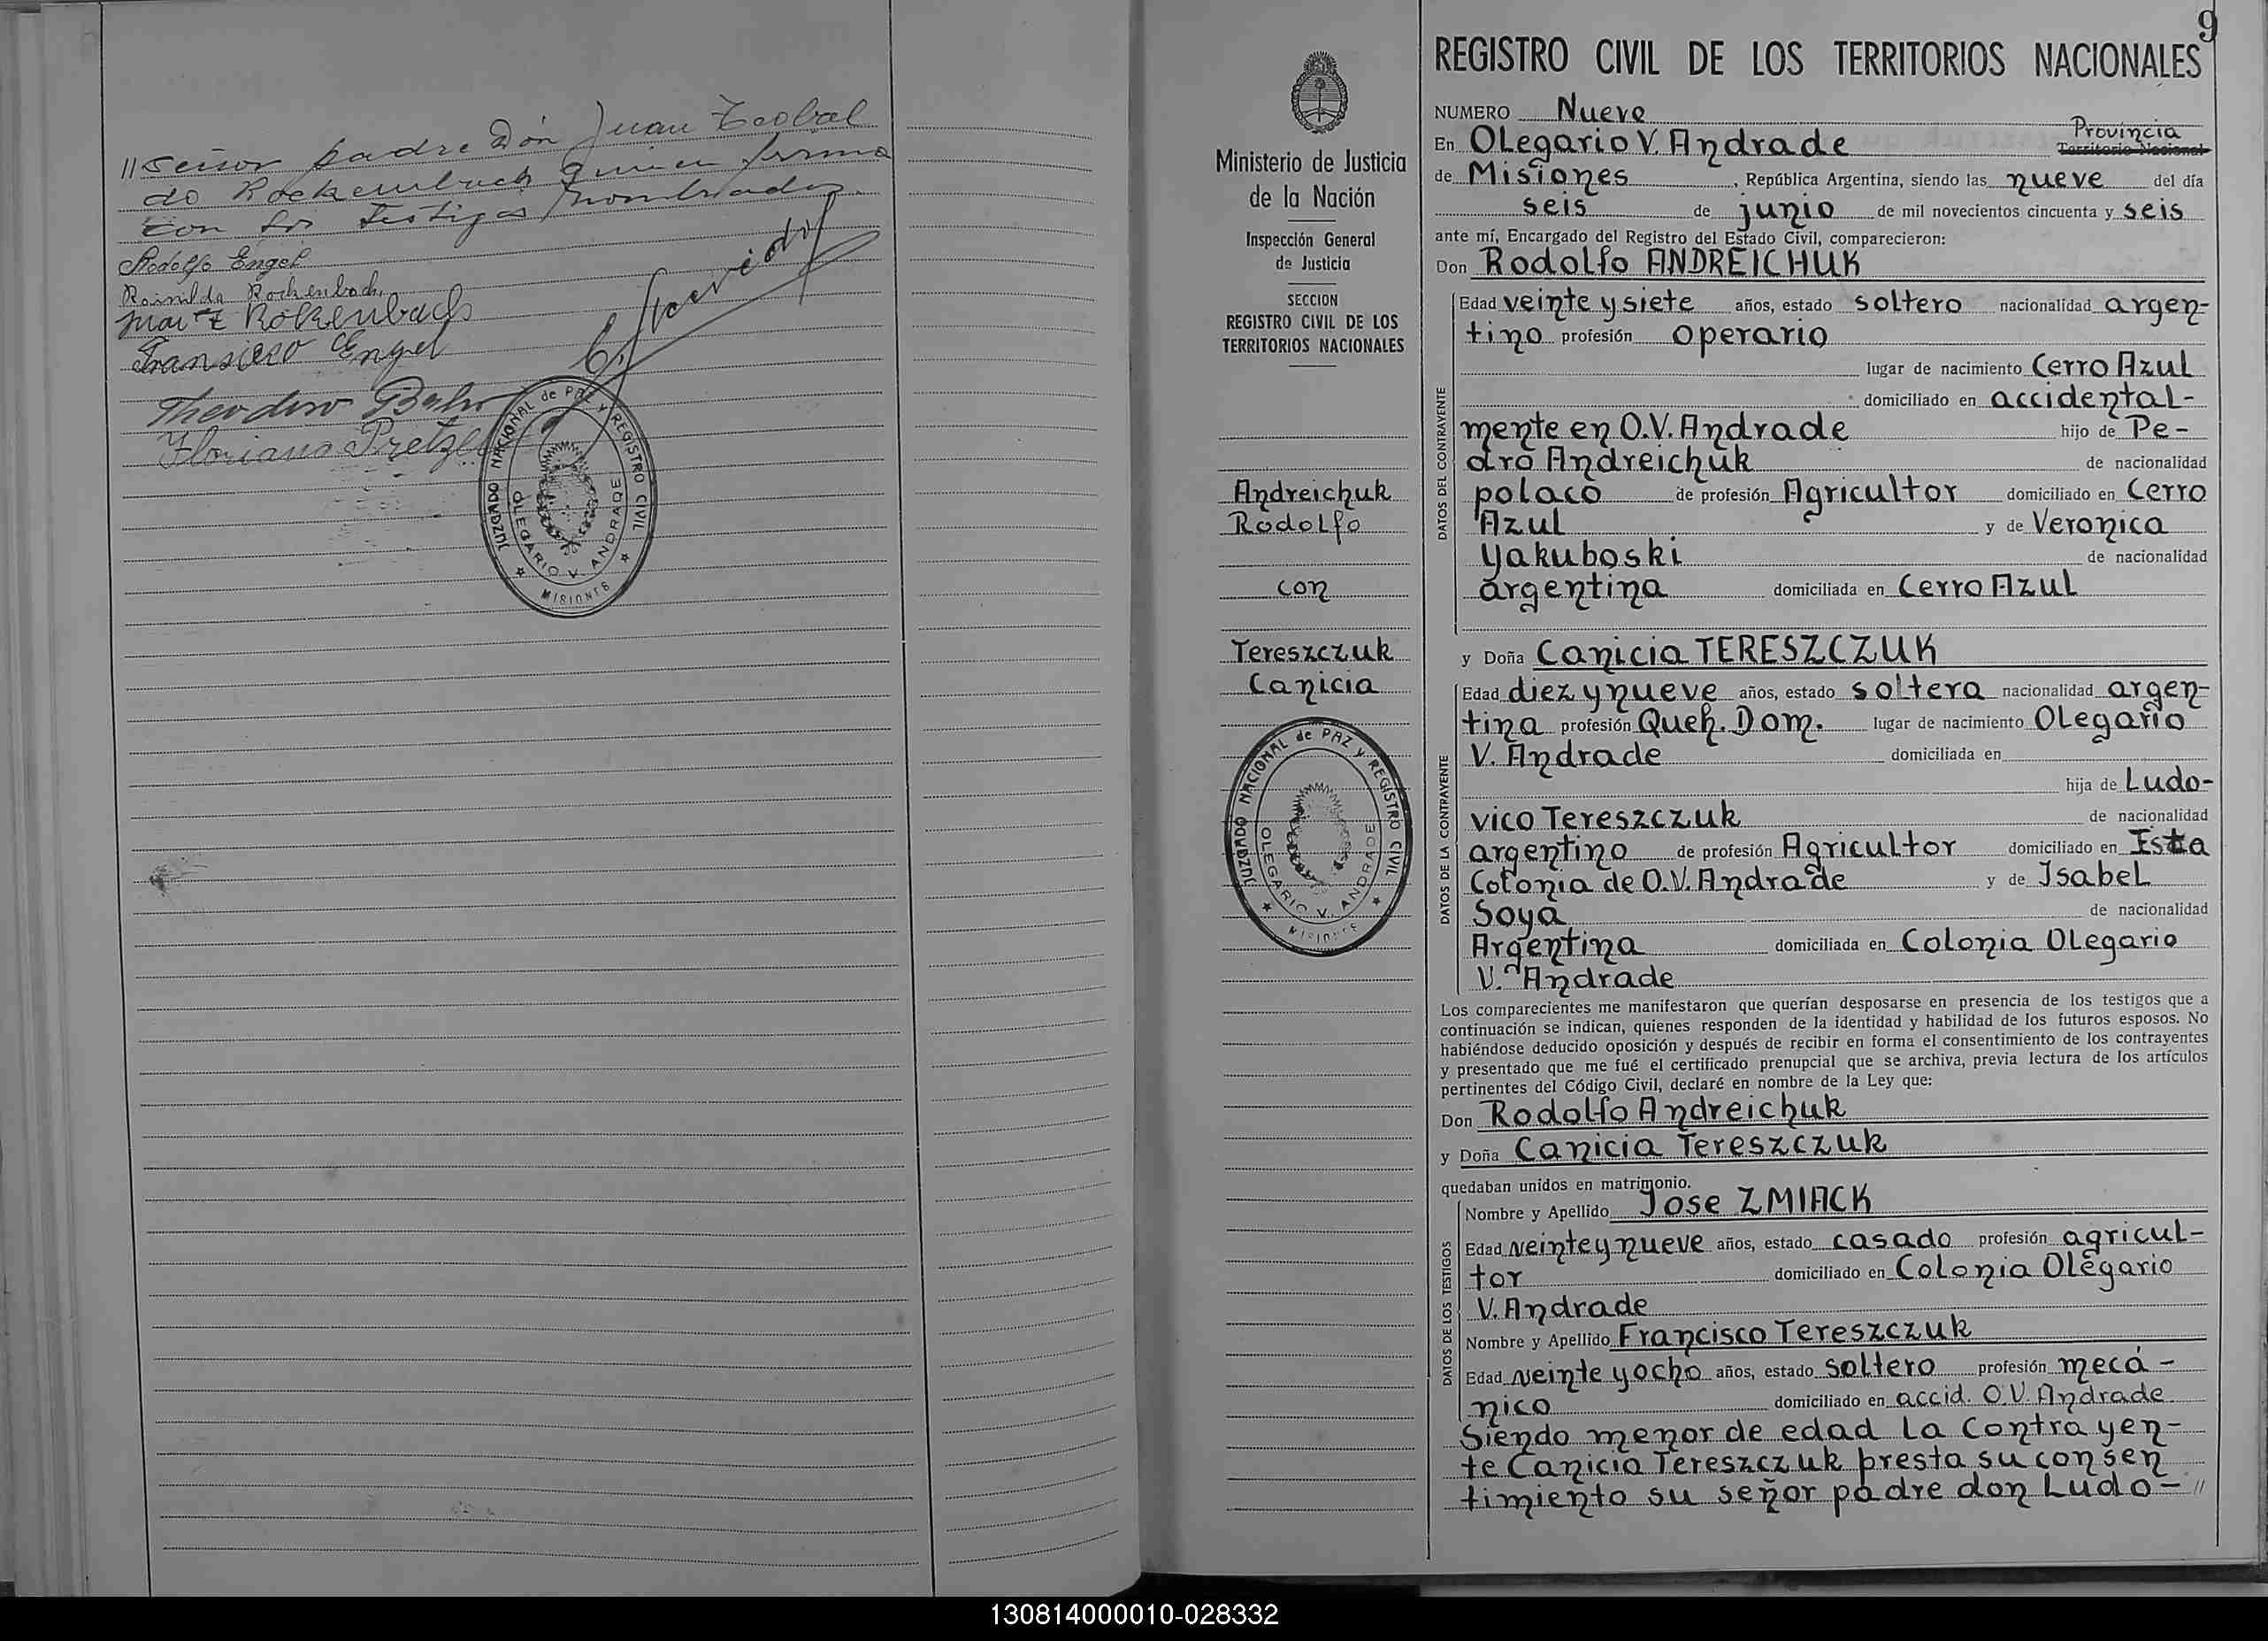 // señor padre Don Juan Teobal
do Rockembach quien firma
con los testigos nombrados.
Rodolfo Engel
Rainilda Rockenbach
Juan T Rokenbach
Fransisco Engel
Theodoro
Floriano Pretzel
JUZGADO NACIONAL de PAZ y REGISTRO CIVIL
OLEGARIO V. ANDRADE
MISIONES
9
REGISTRO CIVIL DE LOS TERRITORIOS NACIONALES
Ministerio de Justicia
de la Nación
Inspección General
de Justicia
SECCION
REGISTRO CIVIL DE LOS
TERRITORIOS NACIONALES
Andreichuk
Rodolfo
con
Tereszczuk
Canicia
JUZGADO NACIONAL de PAZ y REGISTRO CIVIL
OLEGARIO V. ANDRADE
MISIONES
NUMERO Nueve
Provincia
En Olegario V. Andrade Territorio Nacional
de Misiones, República Argentina, siendo las nueve del día
seis de junio de mil novecientos cincuenta y seis
ante mí, Encargado del Registro del Estado Civil, comparecieron:
Don Rodolfo ANDREICHUK
DATOS DEL CONTRAYENTE
Edad veinte y siete años, estado soltero nacionalidad argen-
tino profesión operario
lugar de nacimiento Cerro Azul
domiciliado en accidental-
mente en O.V. Andrade hijo de Pe-
dro Andreichuk de nacionalidad
polaco de profesión Agricultor domiciliado en Cerro
Azul y de Veronica
Yakuboski de nacionalidad
argentina domiciliada en Cerro Azul
y Doña Canicia TERESZCZUK
DATOS DE LA CONTRAYENTE
Edad diez y nueve años, estado soltera nacionalidad argen-
tina profesión Queh. Dom. lugar de nacimiento Olegario
V. Andrade domiciliada en
hija de Ludo-
vico Tereszczuk de nacionalidad
argentino de profesión Agricultor domiciliado en Esta
Colonia de O.V. Andrade y de Isabel
Soya de nacionalidad
Argentina domiciliada en Colonia Olegario
V. Andrade
Los comparecientes me manifestaron que querían desposarse en presencia de los testigos que a
continuación se indican, quienes responden de la identidad y habilidad de los futuros esposos. No
habiéndose deducido oposición y después de recibir en forma el consentimiento de los contrayentes
y presentado que me fué el certificado prenupcial que se archiva, previa lectura de los artículos
pertinentes del Código Civil, declaré en nombre de la Ley que:
Don Rodolfo Andreichuk
y Doña Canicia Tereszczuk
quedaban unidos en matrimonio.
DATOS DE LOS TESTIGOS
Nombre y Apellido Jose ZMIACK
Edad veinte y nueve años, estado casado profesión agricul-
tor domiciliado en Colonia Olegario
V. Andrade
Nombre y Apellido Francisco Tereszczuk
Edad veinte y ocho años, estado soltero profesión mecá-
nico domiciliado en accid. O.V. Andrade
Siendo menor de edad la Contrayen-
te Canicia Tereszczuk presta su consen
timiento su señor padre don Ludo- //
130814000010-028332